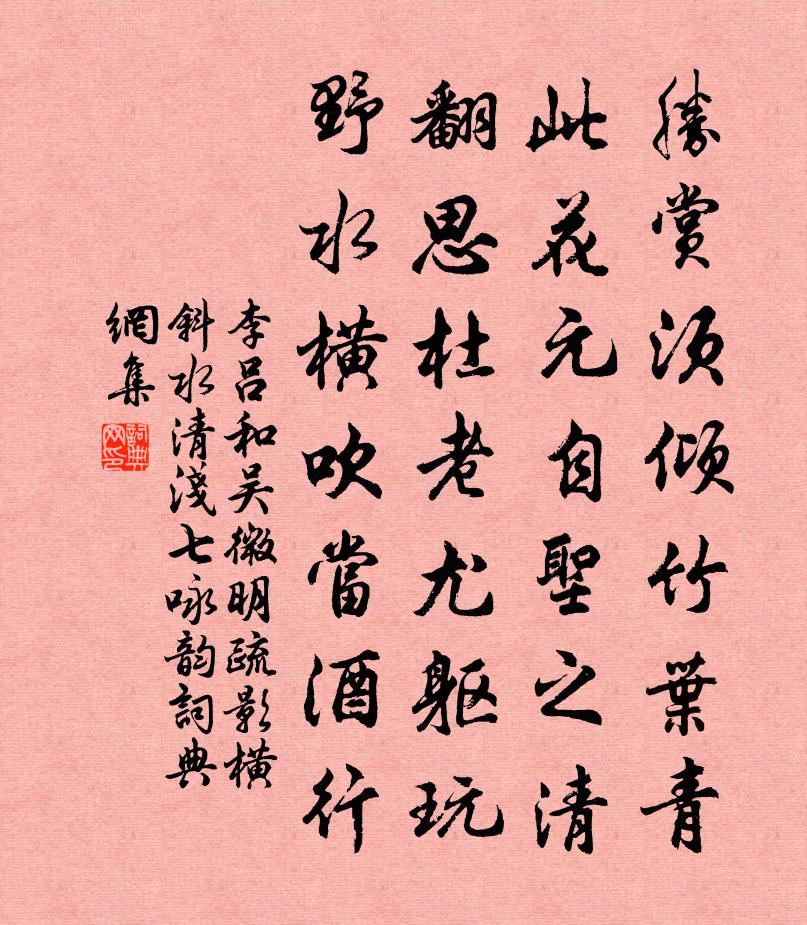 勝賞須傾竹葉青
此花元自聖之清
翻思杜老尤躯玩
野水橫吹當酒行
李呂和吴微明疏影橫
斜水清淺七咏韵詞典
網集
詞典網印